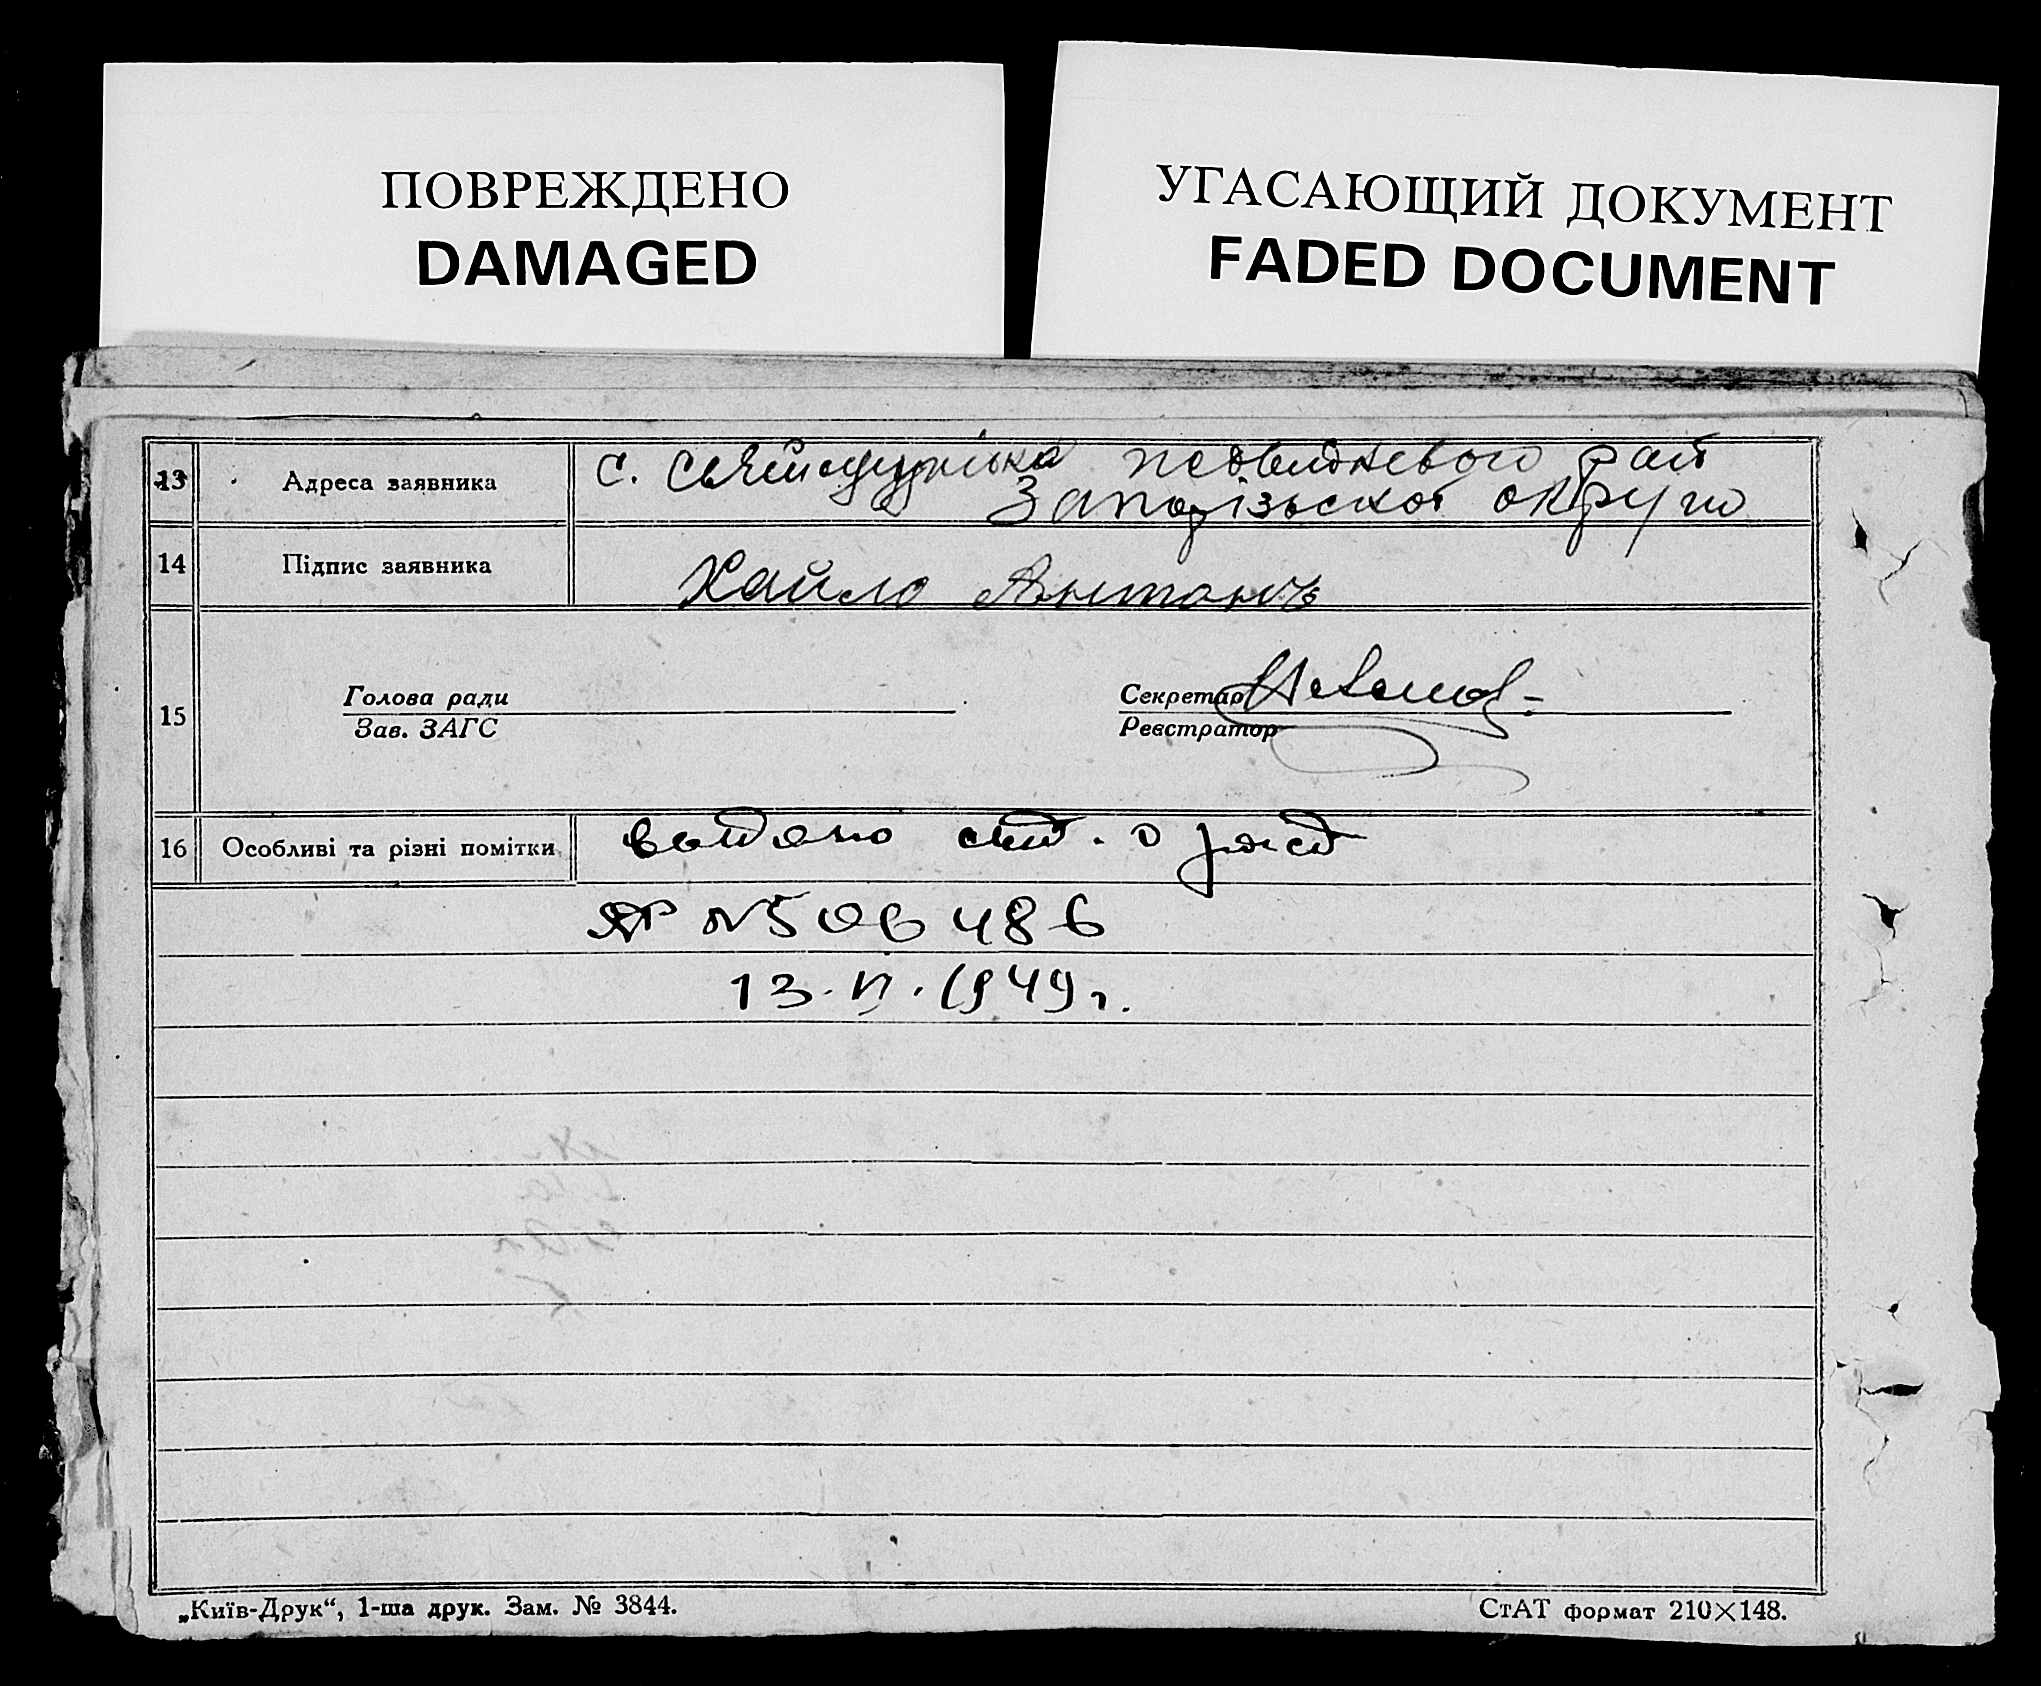 ПОВРЕЖДЕНО
DAMAGED
УГАСАЮЩИЙ ДОКУМЕНТ
FADED DOCUMENT
13 Адреса заявника с. рай
Запорізьскої округи
14 Підпис заявника Хайло Антонъ
Голова ради Секретар
15
Зав. ЗАГС Реєстратор
16 Особливі та різні помітки выдано свид. о рожд
№ 506486
13. VI. 1949 г.
„Київ-Друк“, 1-ша друк. Зам. № 3844. СтАТ формат 210×148.